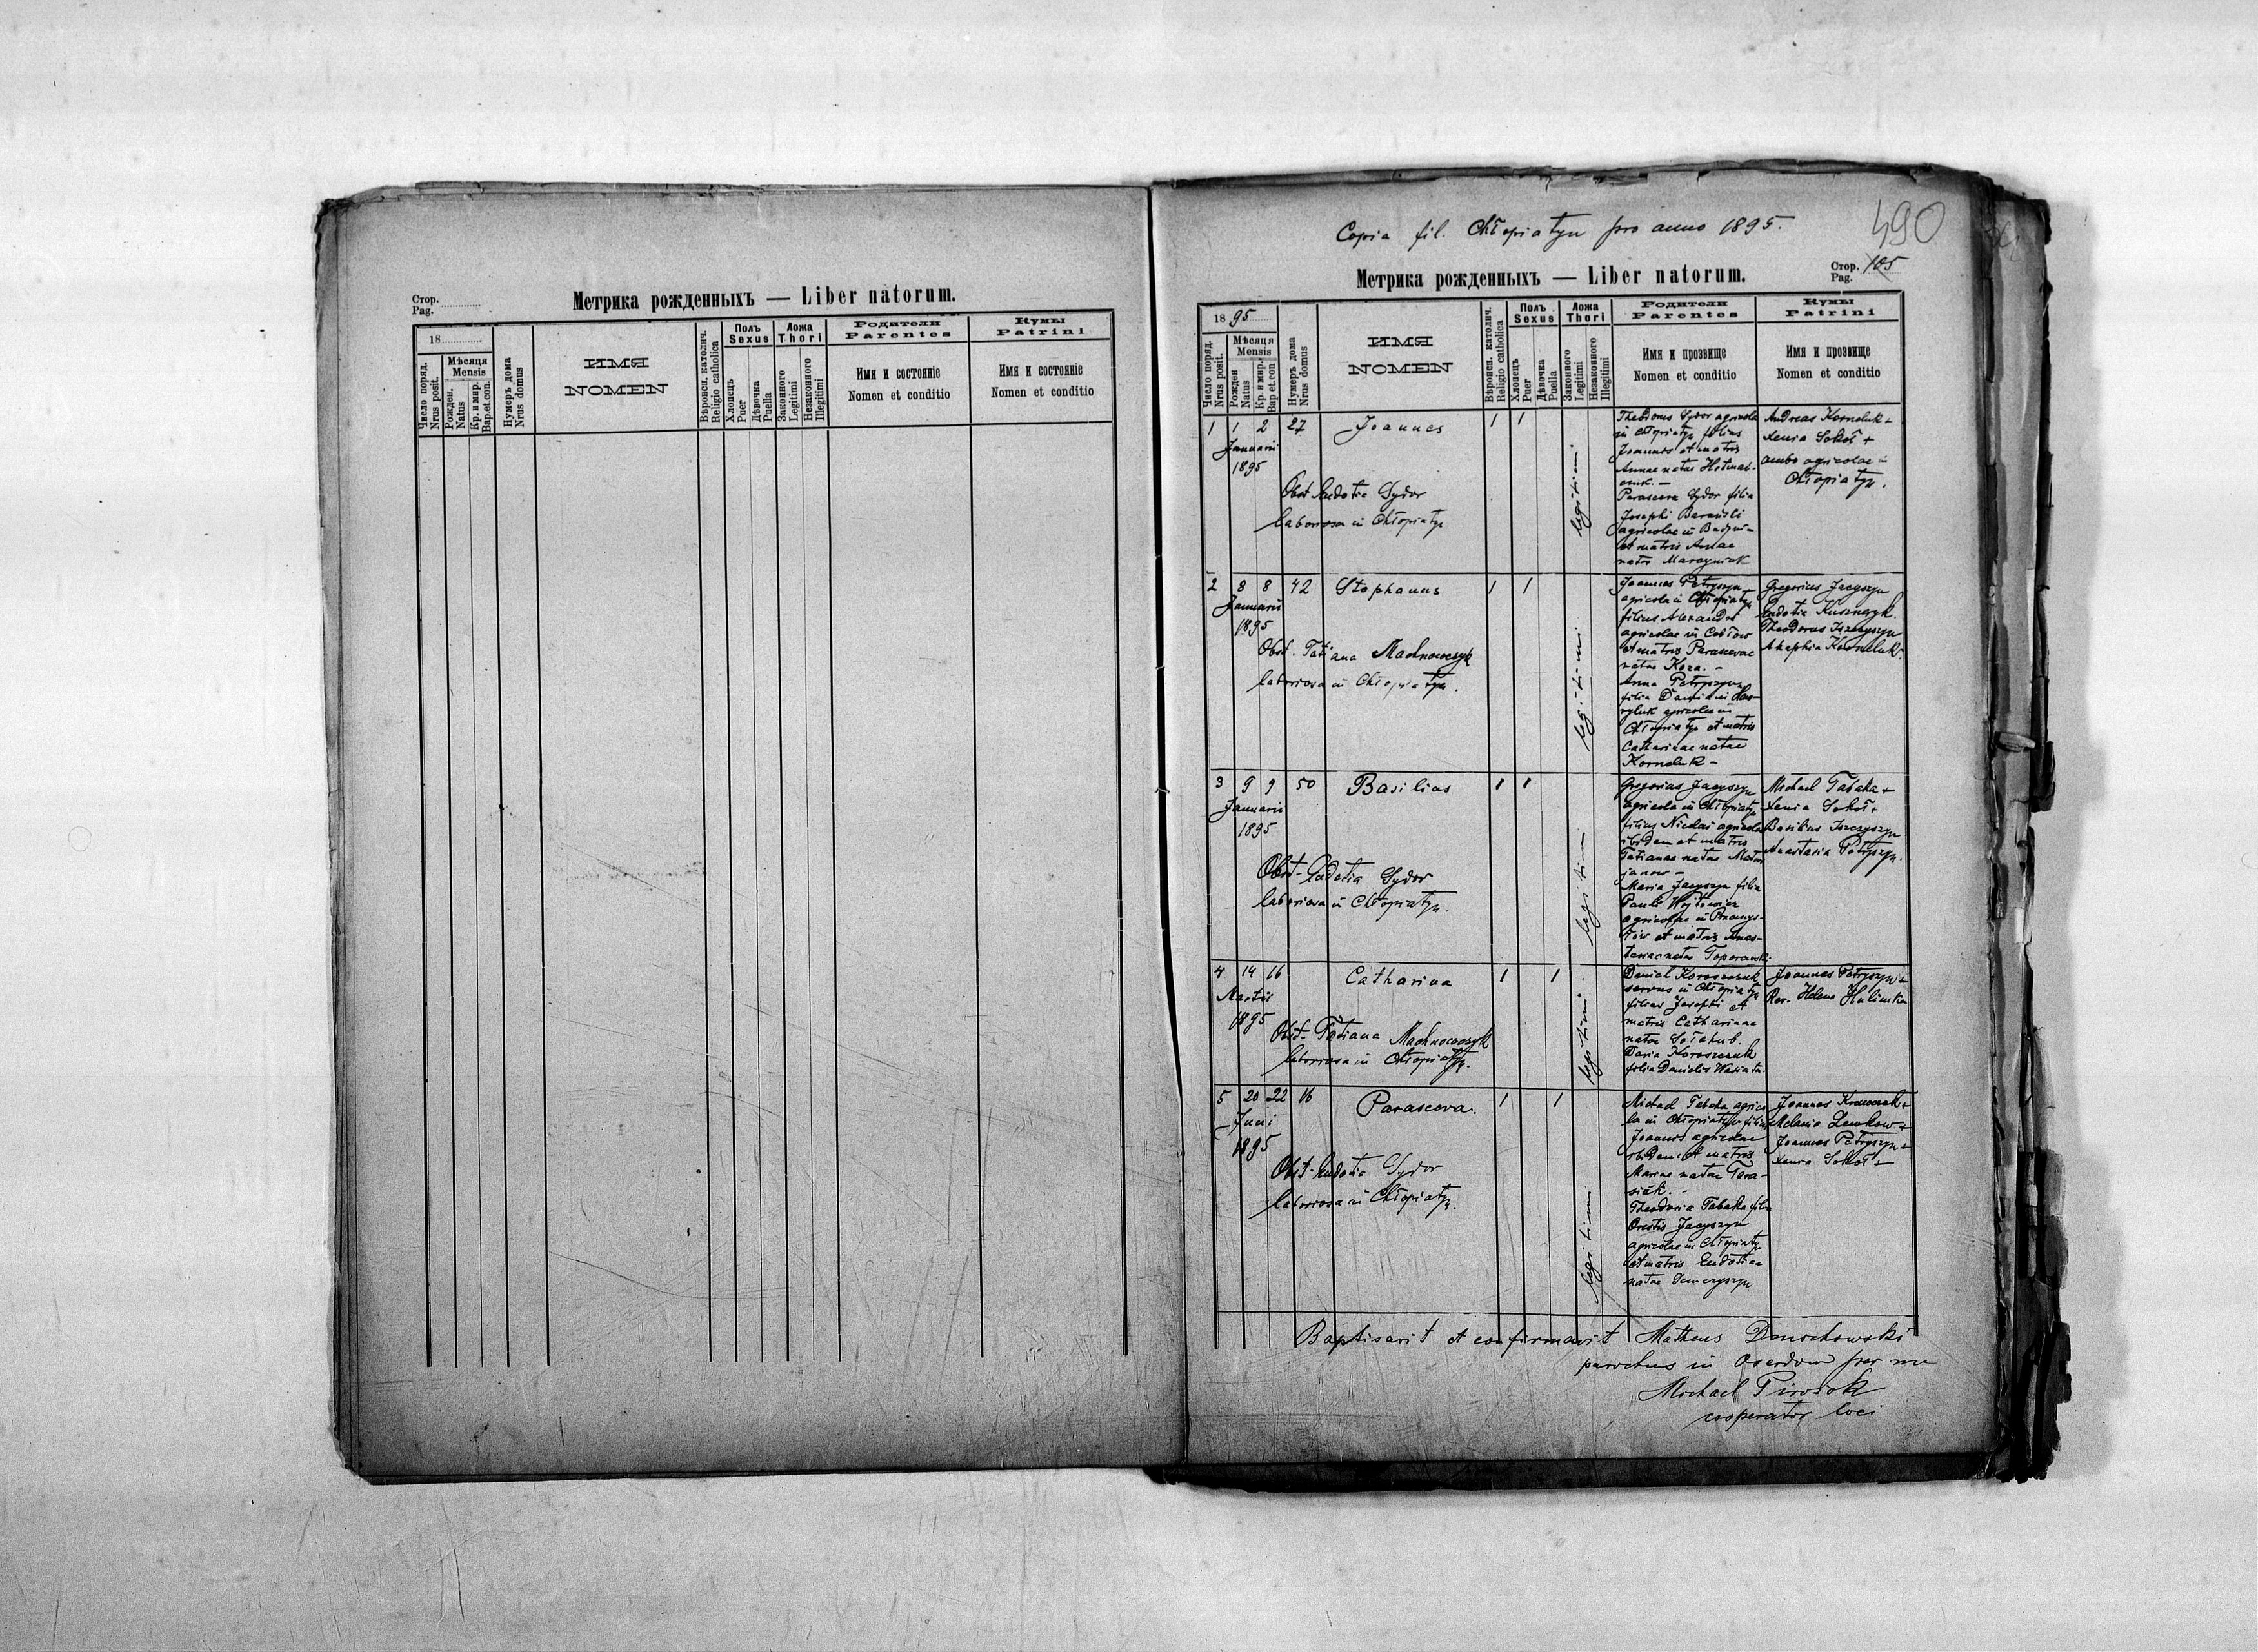 Стор.
Pag.
Метрика рожденныхъ — Liber natorum.
18
Число поряд.
Nrus posit.
Мѣсяця
Mensis
Рожден.
Natus
Кр. и мир.
Bap.et.con.
Нумеръ дома
Nrus domus
ИМЯ
NOMEN
Вѣроисп. католич.
Religio catholica
Полъ
Sexus
Хлопецъ
Puer
Дѣвочка
Puella
Ложа
Thori
Законного
Legitimi
Незаконного
Illegitimi
Родители
Parentes
Имя и состояніе
Nomen et conditio
Кумы
Patrini
Имя и состояніе
Nomen et conditio
Copia fil. Chłopiatyn pro anno 1895.
490
Метрика рожденныхъ — Liber natorum.
Стор.
Pag. 105
18 95
Число поряд.
Nrus posit.
Мѣсяця
Mensis
Рожден
Natus
Кр. и мир.
Bap.et.con
Нумеръ дома
Nrus domus
ИМЯ
NOMEN
Вѣроисп. католич.
Religio catholica
Полъ
Sexus
Хлопецъ
Puer
Дѣвочка
Puella
Ложа
Thori
Законного
Legitimi
Незаконного
Illegitimi
Родители
Parentes
Имя и прозвище
Nomen et conditio
Кумы
Patrini
Имя и прозвище
Nomen et conditio
1 1 2 27 Joannes 1 1
Januarii
1895
Obst. Eudotia Sydor
laboriosa in Chłopiatyn
legitimi
Theodorus Sydor agricola
in Chłopiatyn filius
Joannis et matris
Annae natae
Parasceva Sydor filia
Josephi Barański
agricolae in
et matris Annae
natae Marcyniuk
Andreas Korneluk +
Xenia Sokół +
ambo agricolae in
Chłopiatyn.
2 8 8 42 Stephanus 1 1
Januarii
1895
Obst. Tatiana Machnowczyk
laboriosa in Chłopiatyn.
legitimi
Joannes Petryszyn
agricola in Chłopiatyn
filius Alexandri
agricolae in
et matris Parascevae
natae Koza. –
Anna Petryszyn
filia Damiani
agricolae in
Chłopiatyn et matris
Catharinae natae
Korneluk –
Gregorius Jacyszyn
Eudotia
Theodorus Iszczyszyn
Korneluk.
3 9 9 50 Basilius 1 1
Januarii
1895
Obst. Eudotia Sydor
laboriosa in Chłopiatyn.
legitimi
Gregorius Jacyszyn
agricola in Chłopiatyn
filius Nicolai agricolae
ibidem et matris
Tatianae natae
Maria Jacyszyn filia
Pauli Wojtowicz
agricolae in Przemys-
łów et matris Anas-
tasiae natae Toporowski
Michael Tabaka +
Xenia Sokół +
Basilius Iszczyszyn
Anastasia Petryszyn.
4 14 16 Catharina 1 1
Martii
1895
Obst. Tatiana Machnowczyk
laboriosa in Chłopiatyn.
legitimi
Daniel Koroszczuk
servus in Chłopiatyn
filius Josephi et
matris Catharinae
natae
Daria Koroszczuk
filia Danielis
Joannes Petryszyn +
Rev. Helena Hulimka
5 20 22 16 Parasceva. 1 1
Juni
1895
Obst. Eudotia Sydor
laboriosa in Chłopiatyn.
legitimi
Michael Tabaka agrico
la in Chłopiatyn filius
Joannis agricolae
ibidem et matris
Mariae natae Tara-
siuk. –
Theodosia Tabaka filia
Orestis Jacyszyn
agricolae in Chłopiatyn
et matris Eudotiae
natae
Joannes Krawczuk +
Melania Lewkow +
Joannes Petryszyn +
Xenia Sokół +
Baptisavit et confirmavit Matheus Donochowski
parochus in Oserdow per me
Michael Pirożok
cooperator loci